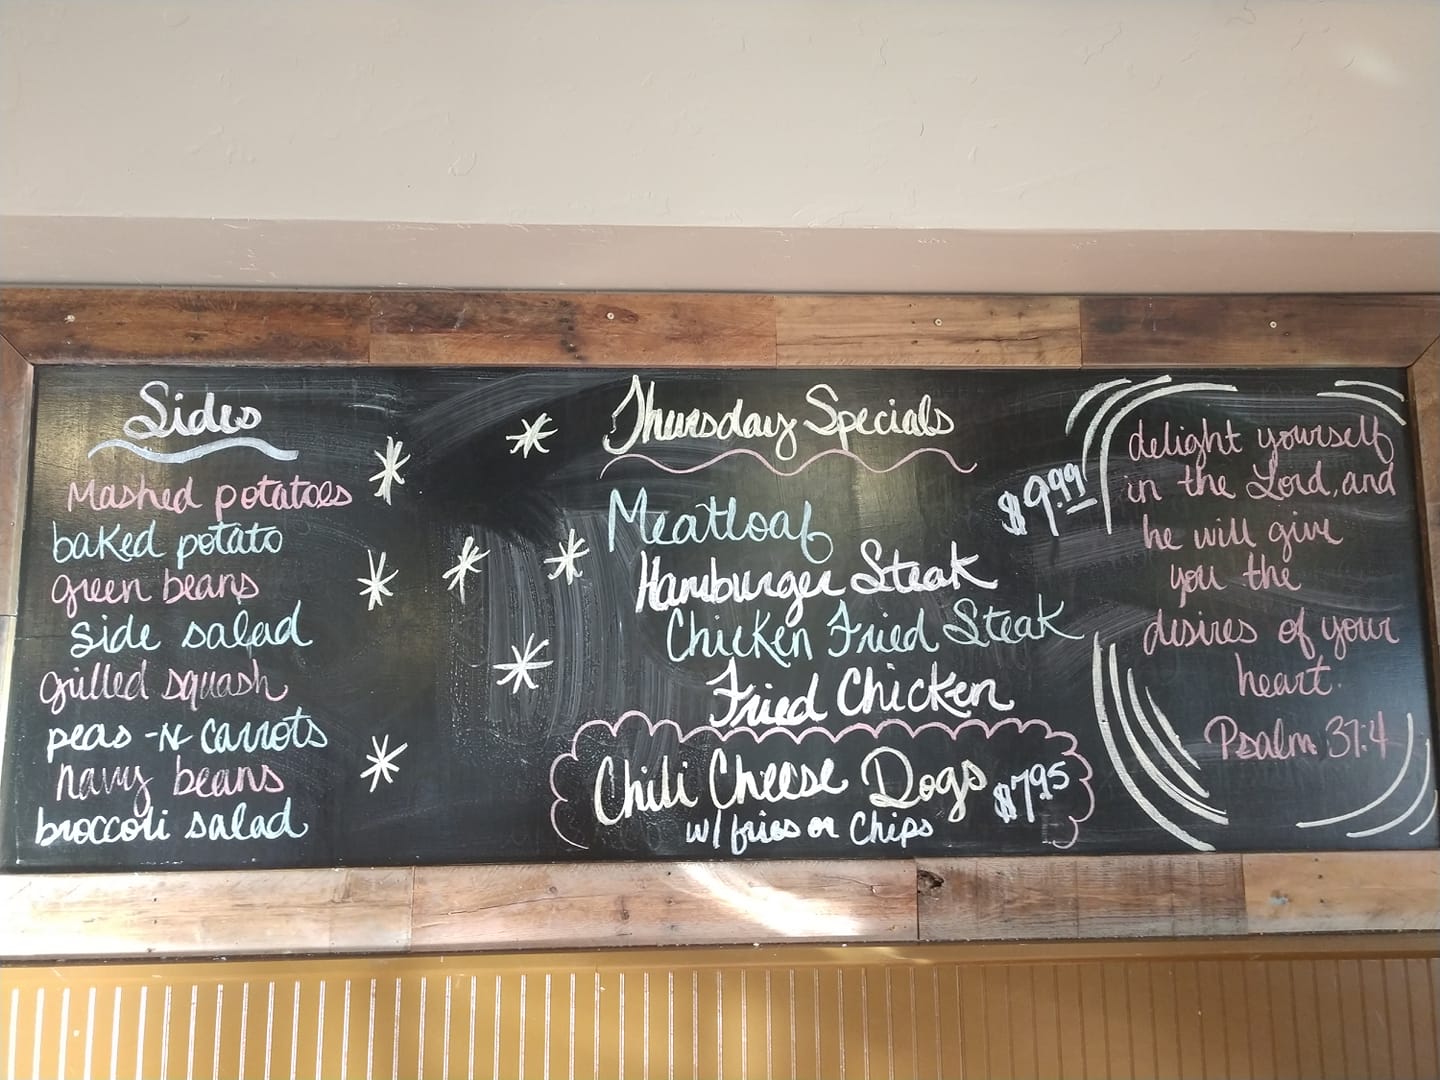 Sides
Mashed potatoes
baked potato
green beans
side salad
grilled squash
peas -N- carrots
navy beans
broccoli salad
Thursday Specials
$9.99
Meatloaf
Hamburger Steak
Chicken Fried Steak
Fried Chicken
Chili Cheese Dogs $7.95
w/ fries or Chips
delight yourself
in the Lord, and
he will give
you the
desires of your
heart.
Psalm 37:4